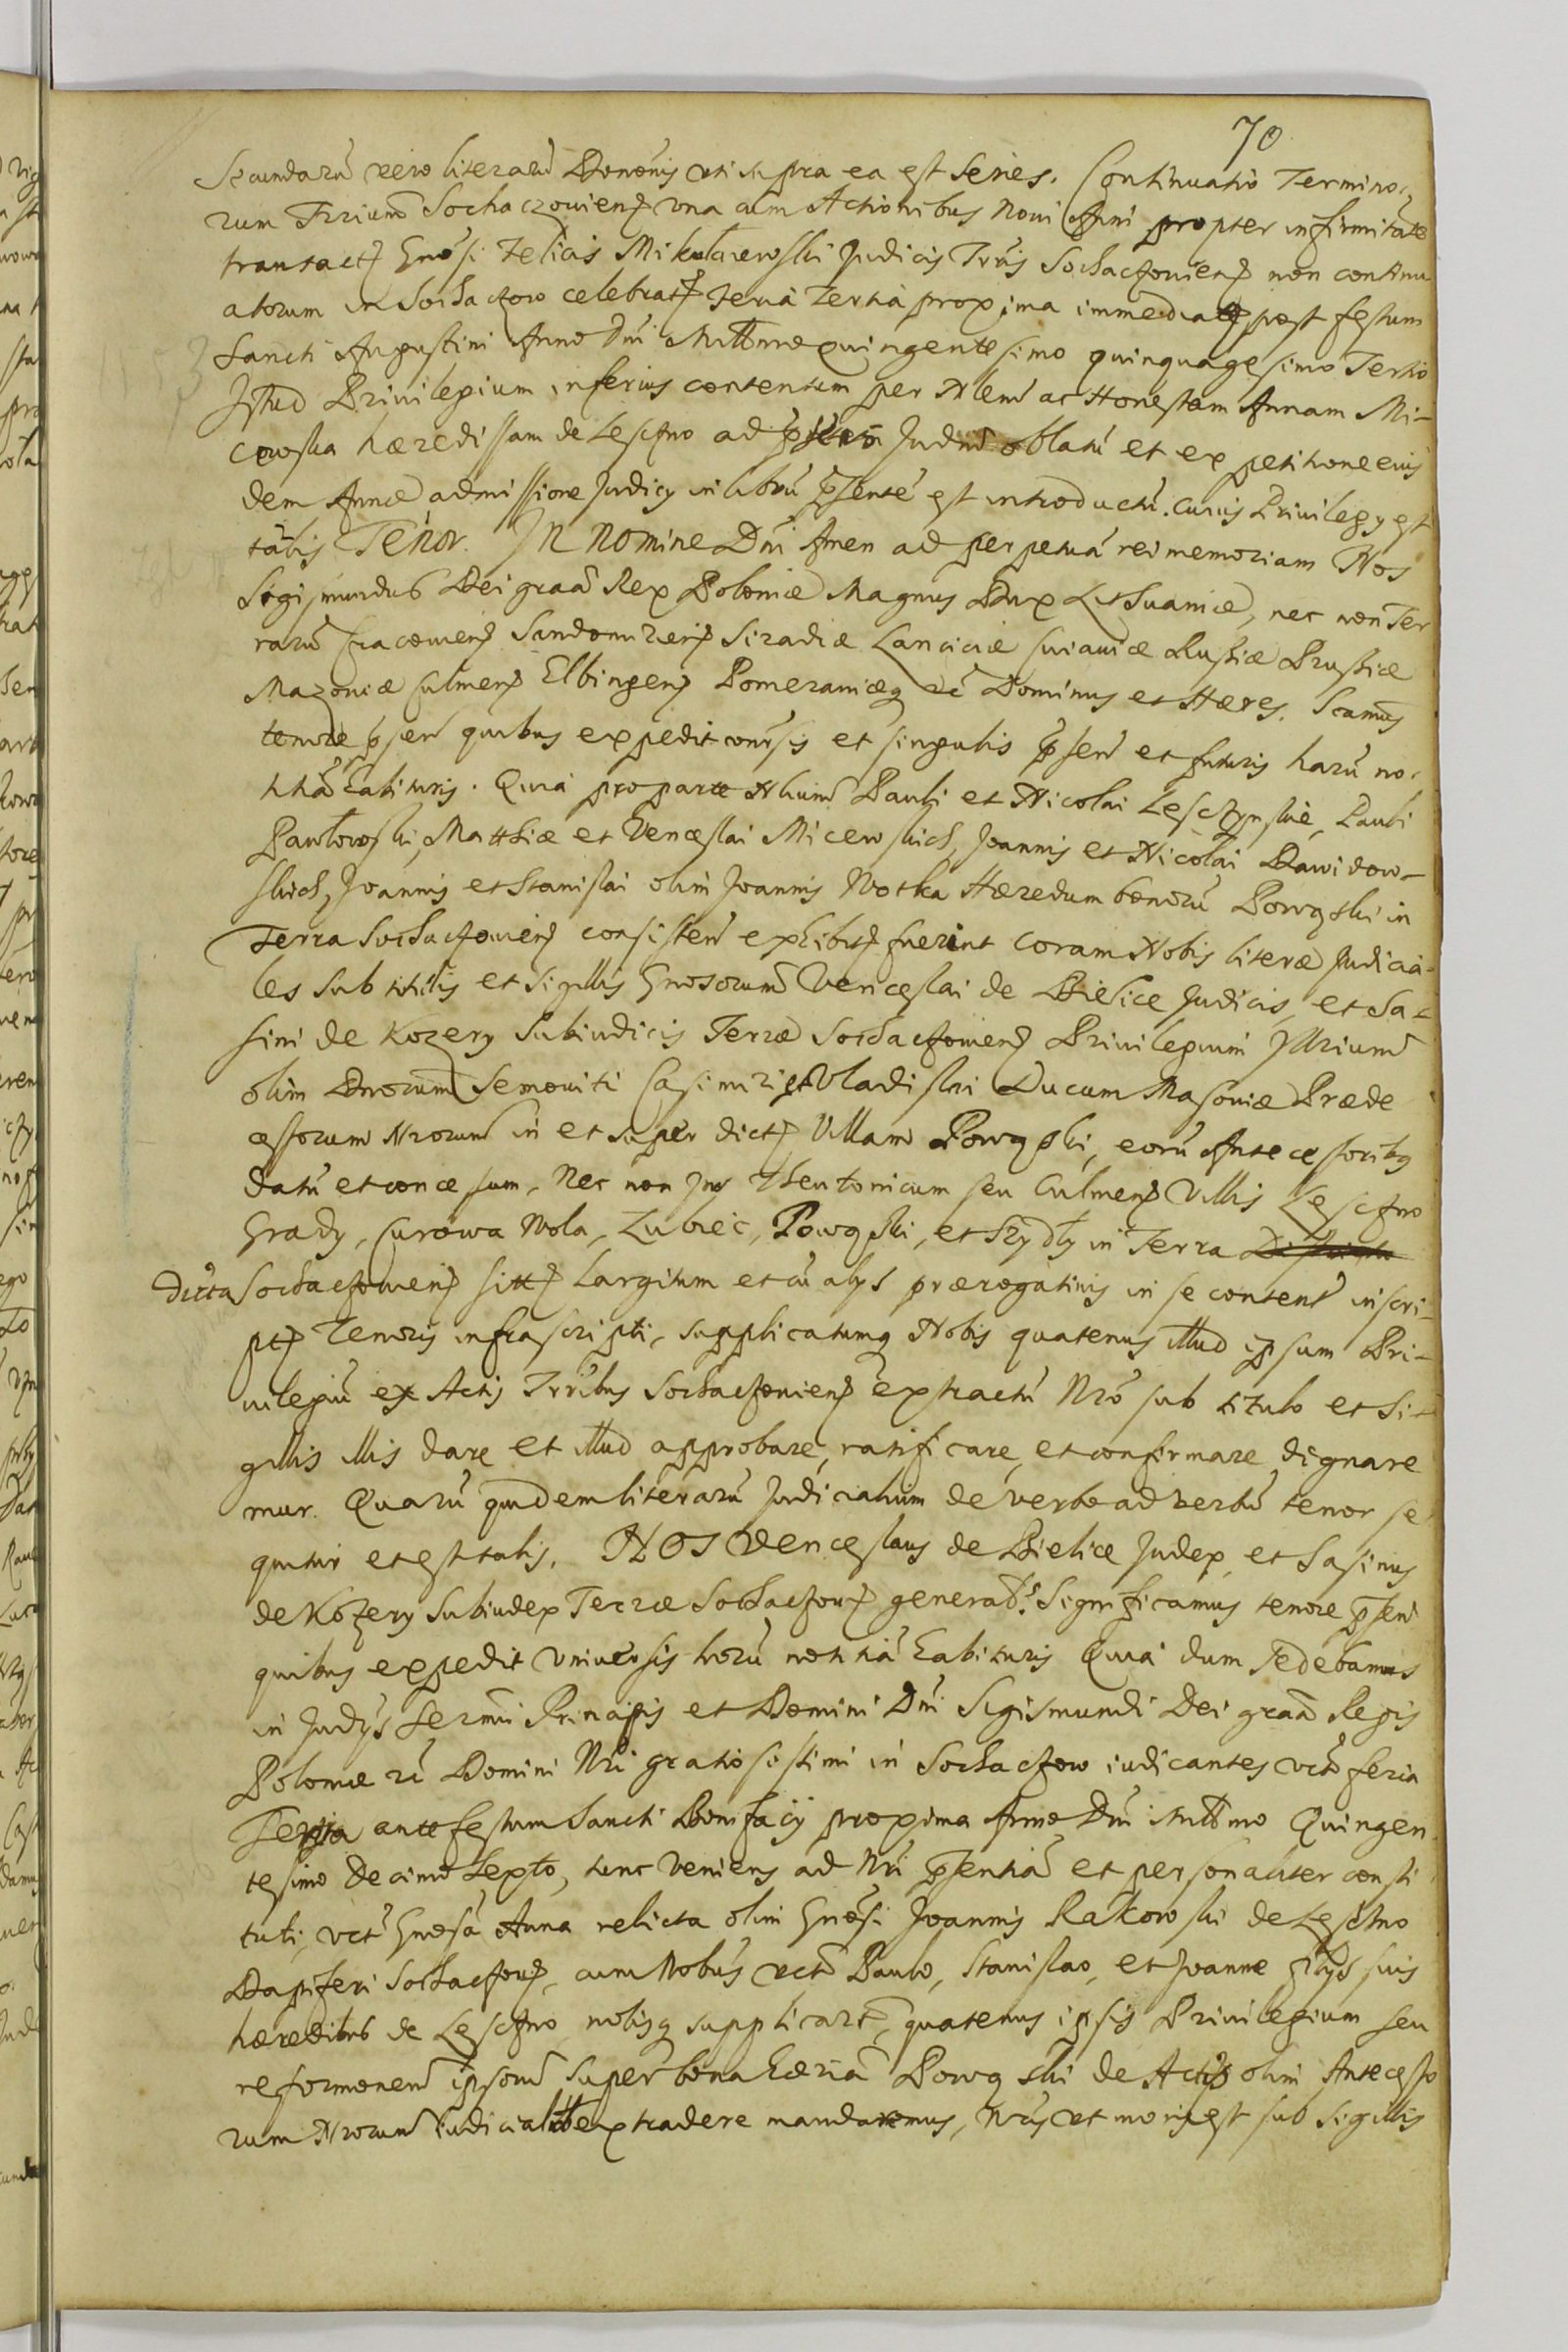 70
Secundarũ vero literarũ Donoñis uti supra ea est Series. Continuatio Termino-
rum Trrium̃ Sochaczovien̄ una cum Actionibus Novi Anni propter infirmitate
transact̄ Gnõsi Felicis Mikułaiewski Judicis Trr̃is Sochaczovien̄ non continu
atorum in Sochaczow celebrat̄ Feria Tertia proxima immediate post festum
Sancti Augustini Anno Dñi Millmo quingentesimo quinquagesimo Tertio
Istud Privilegium inferius contentum per Nlem̃ ac Honestam Annam Mi-
cowska hæredissam de Lesczno ad Judm̃ oblatũ et ex petitione eius
dem Annæ admissione Judicy in librũ p̃sentẽ est introductũ. Cuius Privilegy est
talis Tenor. IN Nomine Dñi Amen ad perpetuã rei memoriam Nos
Sigismundus Dei graã Rex Poloniæ Magnus Dux Lithuaniæ, nec non Ter
rarũ Cracovien̄ Sandomirien̄ Siradiæ Lanciciæ Cuiaviæ Russiæ Prussiæ
Mazoviæ Culmen̄ Elbingen̄ Pomeraniæq̃ rc̃ Dominus et Hæres. Scimus
tenore p̃sen̄ quibus expedit uniṽsis et singulis p̃sen̄ et futuris harũ no-
titiã habituris. Quia pro parte Nlium̃ Pauli et Nicolai Lesczynskie, Pauli
Pawłowski, Matthiæ et Venceslai Micewskich, Joannis et Nicolai Dawidow-
skich, Joannis et Stanislai olim Joannis Wotka Hæredum bonorũ Powązki in
Terra Sochaczovien̄ consisten̄ exhibit̄ fuerint coram Nobis literæ Judicia-
les sub titulis et sigillis Gnosorum̃ Venceslai de Bielice Judicis, et Sa-
sini de Kozery Subiudicis Terræ Sochaczovien̄ Privilegium Illrium̃
olim Dnorum̃ Semoviti Casimiri et Vladislai Ducum Masoviæ Præde
cessorum Nrorum̃ in et super dict̄ Villam Powązki, eorũ Antecessoribq
datũ et concessum, Nec non Jus Theutonicum seu Culmen̄ Villis Lesczno
Grady, Curowa Wola, Zubiec, Powązki, et Szydły in Terra
dicta Sochaczovien̄ sitt̄ largitum et cũ alys prærogativis in se conten̄ inscri-
pt̄ tenoris infrascripti, supplicatumq Nobis quatenus illud ipsum Pri-
vilegiũ ex Actis Trr̃ibus Sochaczovien̄ extractũ Nrõ sub titulo et Si-
gillis illis dare et illud approbare, ratificare, et confirmare dignare
mur. Quarũ quidem literarũ Judicialium de verbo ad verbũ tenor se
quitur et est talis. NOS Venceslaus de Bielice Judex, et Sasinus
de Kozery Subiudex Terræ Sochaczov̄ general̃s Significamus tenore p̃sen̄
quibus expedit Universis horũ notitiã habituris Quia dum sedebamus
in Judys Sermĩ Principis et Domini Dñi Sigismundi Dei graã Regis
Poloniæ rc̃ Domini Nr̃i gratiosissimi in Sochaczow iudicantes uct̃ feria
Tertia ante festum Sancti Bonifacij proxima Anno Dñi Millmo Quingen
tesimo Decimo Sexto, tunc veniens ad Nr̃i p̃sentiã et personaliter consti
tuti, uct̃ Gnosã Anna relicta olim Gnõsi Joannis Rakowski de Lesczno
Dapiferi Sochaczov̄, cum Nobus̃ uct̃ Paulo, Stanislao, et Joanne filys suis
hæredibus de Lesczno, nobisq supplicarũt, quatenus ipsis Privilegium seu
reformõnem̃ ipsorũ super bona hæriã Powązki de Actis olim Antecesso
rum Nrorum̃ iudicialit̃ extradere mandaremus, Nr̃is ut moris est sub sigillis